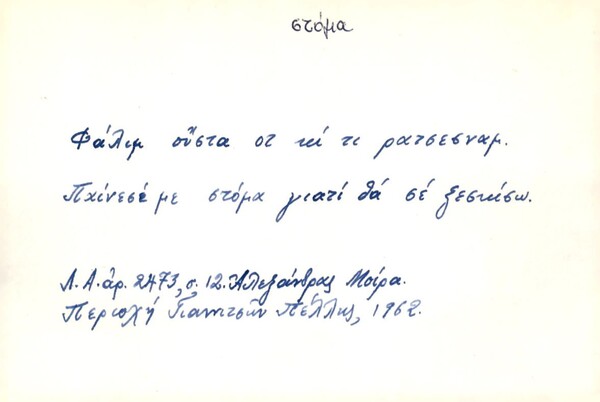 στόμα
Φάλιμ οὔστα οτ κέ τι ρατσεσναμ.
Πχίνεσέ με στόμα γιατί θά σέ ξεσκίσω.
Λ.Α. ἀρ. 2473, σ. 12. Ἀλεξάνδρας Μοίρα.
Περιοχή Γιαννιτσῶν Πέλλης, 1962.